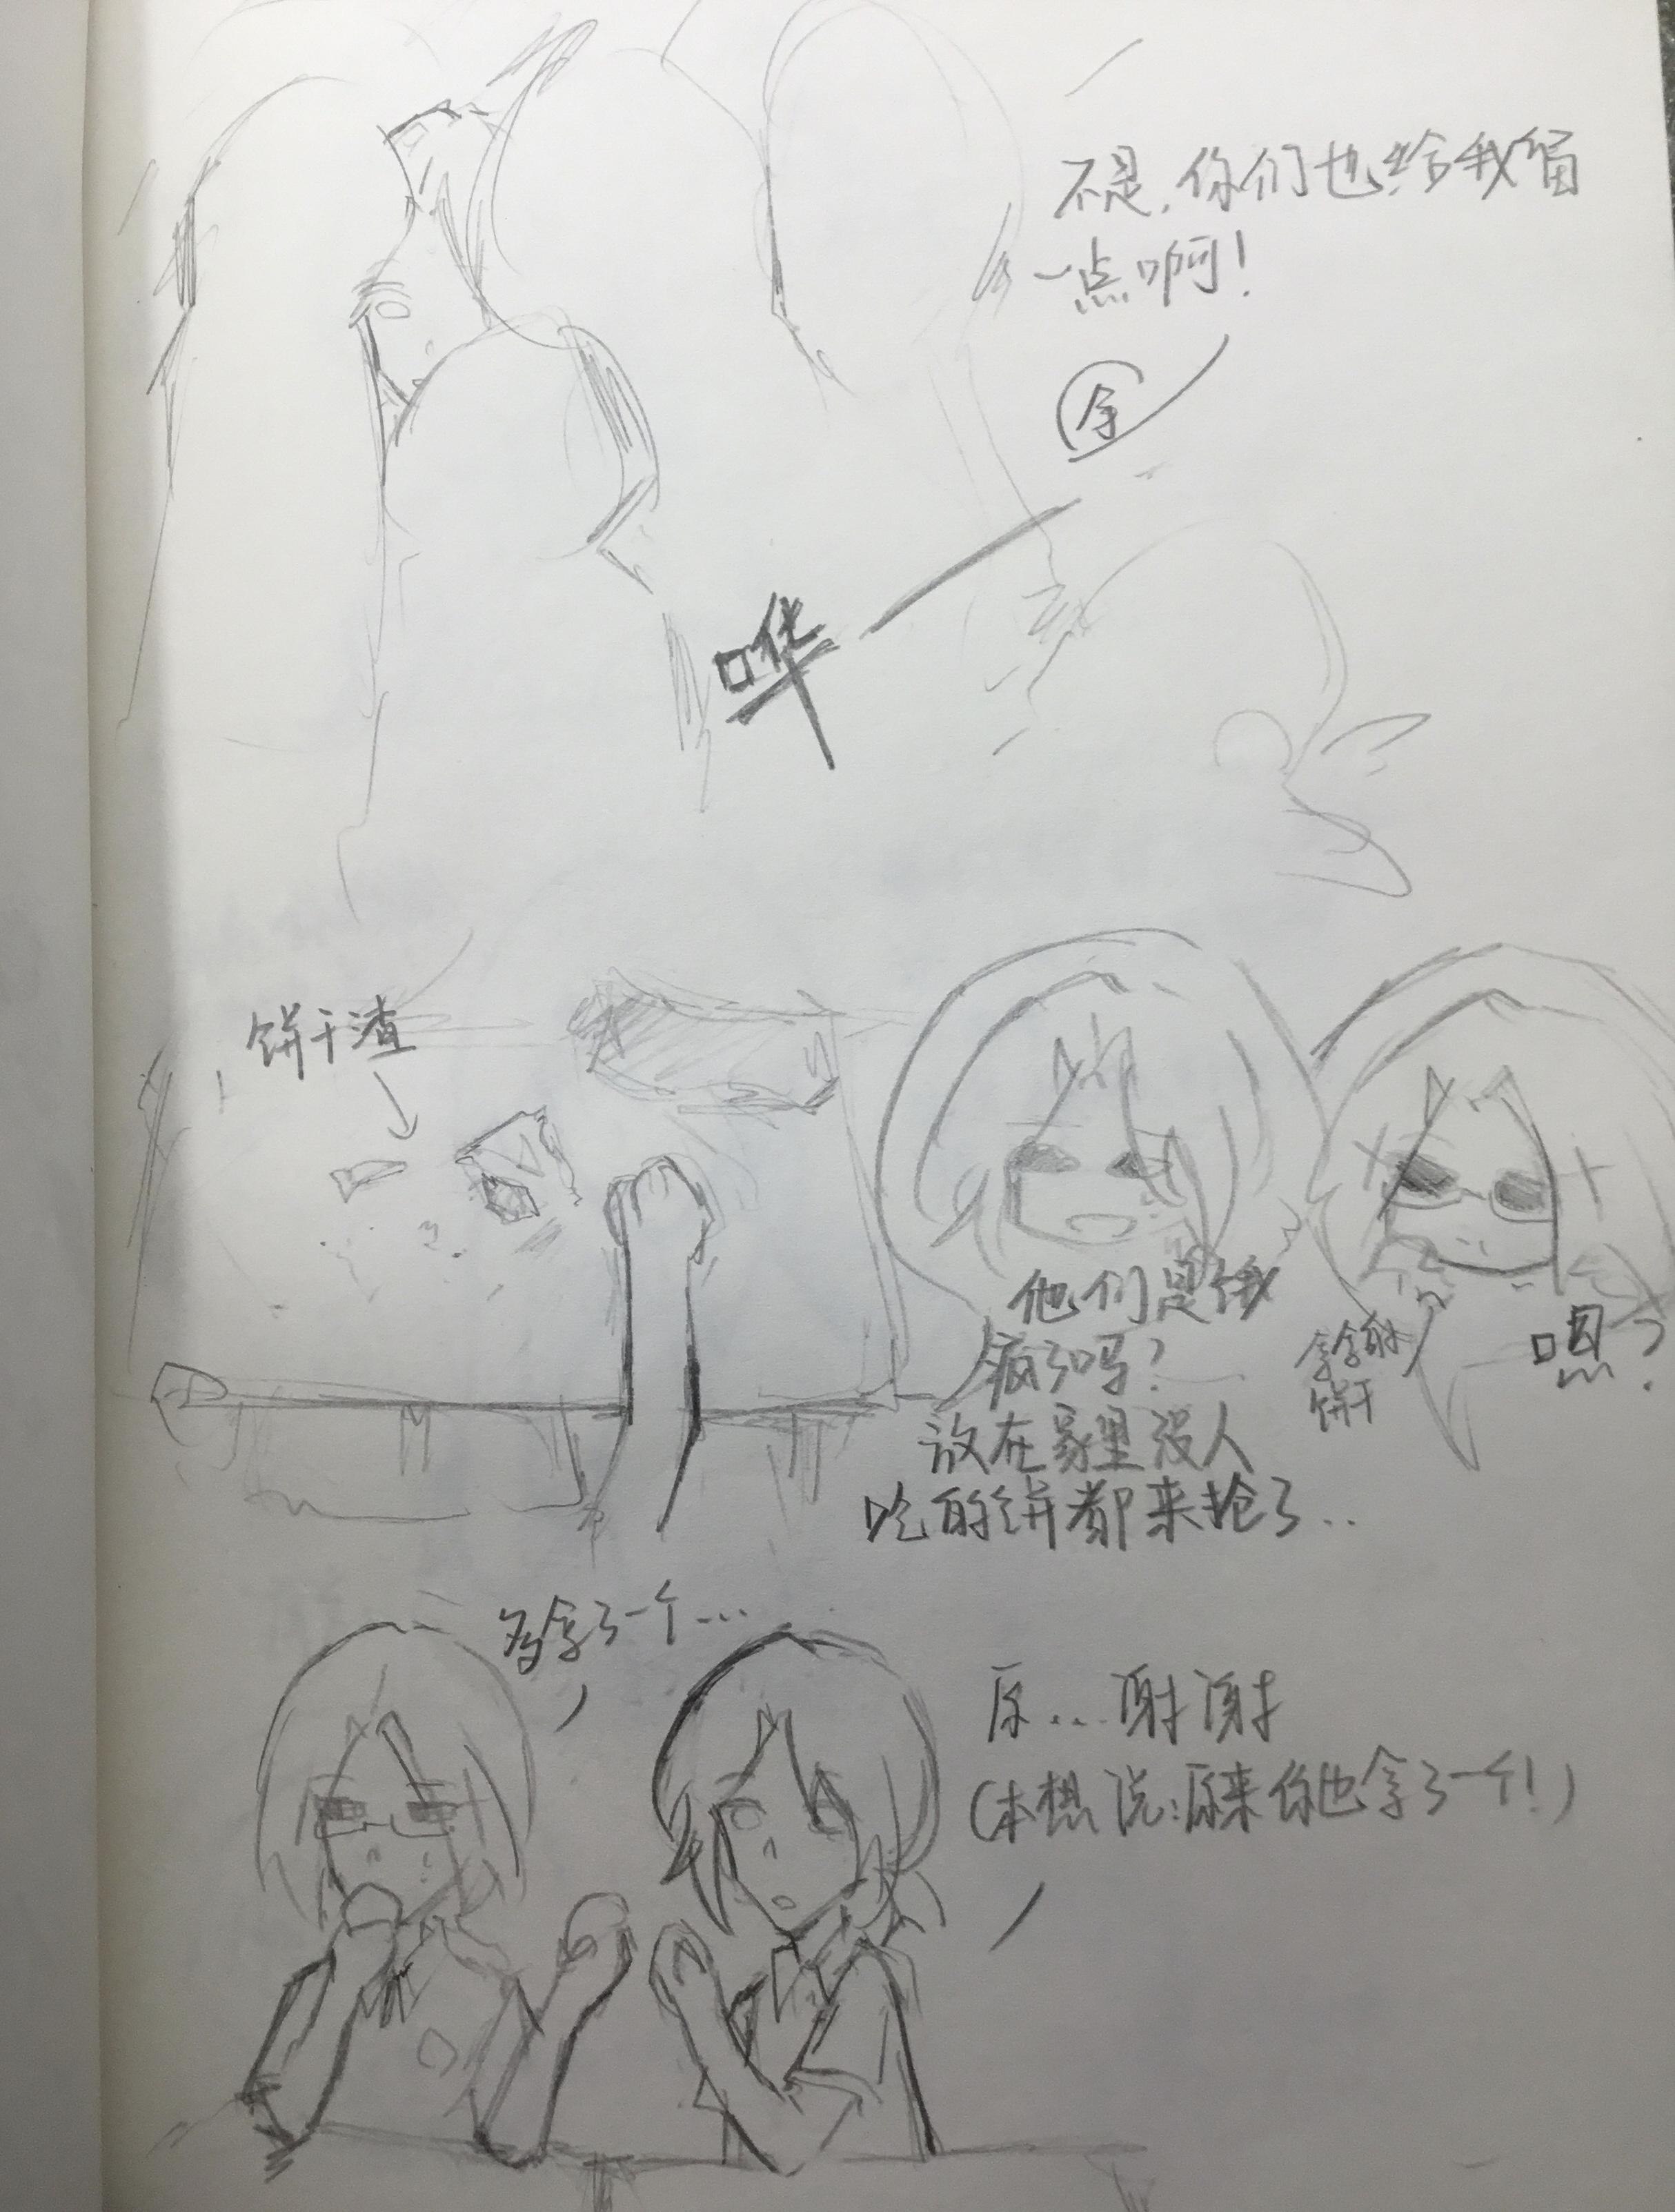 不是，你们也给我留
一点啊！
余
哗
饼干渣
他们是饿
疯了吗？
放在家里没人
吃的饼都来抢了..
拿拿的
饼干
嗯？
多拿了一个...
原...谢谢
（本想说：原来你也拿了一个！）